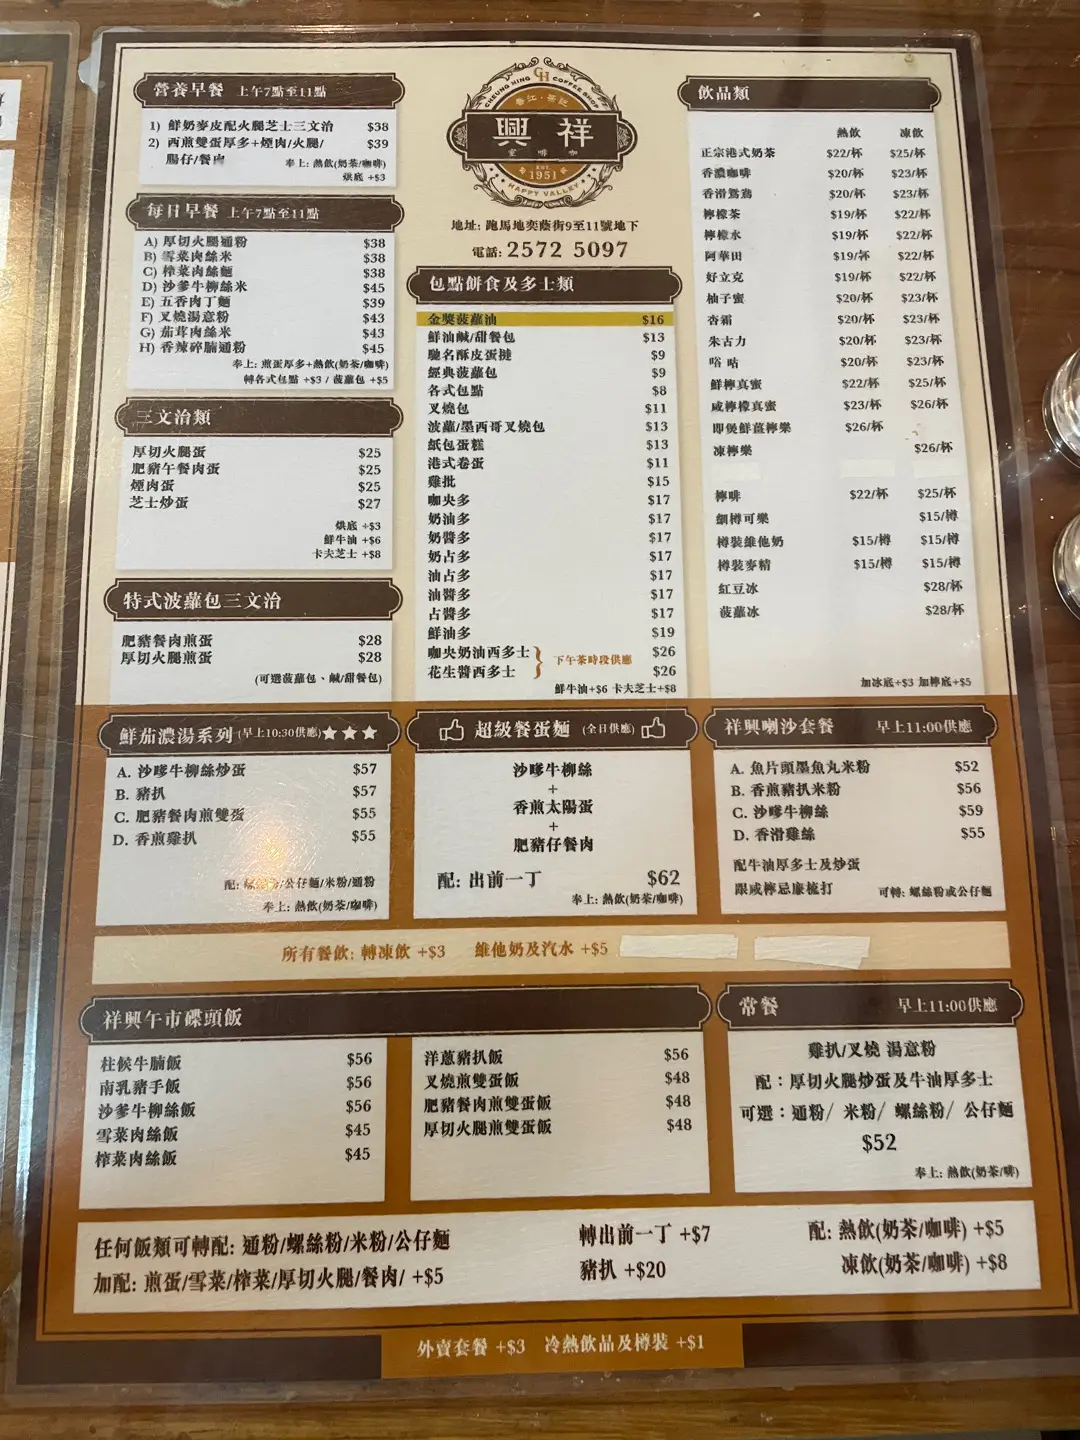 營養早餐 上午7點至11點
1) 鮮奶麥皮配火腿芝士三文治 $38
2) 西煎雙蛋厚多+煙肉/火腿/ $39
腸仔/餐肉 奉上: 熱飲(奶茶/咖啡)
烘底 +$3
每日早餐 上午7點至11點
A) 厚切火腿通粉 $38
B) 雪菜肉絲米 $38
C) 榨菜肉絲麵 $38
D) 沙爹牛柳絲米 $45
E) 五香肉丁麵 $39
F) 叉燒湯意粉 $43
G) 茄茸肉絲米 $43
H) 香辣碎腩通粉 $45
奉上: 煎蛋厚多+熱飲(奶茶/咖啡)
轉各式包點 +$3 / 菠蘿包 +$5
三文治類
厚切火腿蛋 $25
肥豬午餐肉蛋 $25
煙肉蛋 $25
芝士炒蛋 $27
烘底 +$3
鮮牛油 +$6
卡夫芝士 +$8
特式波蘿包三文治
肥豬餐肉煎蛋 $28
厚切火腿煎蛋 $28
(可選菠蘿包、鹹/甜餐包)
CHEUNG HING COFFEE SHOP
CH
香江·茶記
興祥
室啡咖
EST
1951
HAPPY VALLEY
地址: 跑馬地奕蔭街9至11號地下
電話: 2572 5097
包點餅食及多士類
金獎菠蘿油 $16
鮮油鹹/甜餐包 $13
馳名酥皮蛋撻 $9
經典菠蘿包 $9
各式包點 $8
叉燒包 $11
波蘿/墨西哥叉燒包 $13
紙包蛋糕 $13
港式卷蛋 $11
雞批 $15
咖央多 $17
奶油多 $17
奶醬多 $17
奶占多 $17
油占多 $17
油醬多 $17
占醬多 $17
鮮油多 $19
咖央奶油西多士 $26
花生醬西多士 $26
下午茶時段供應
鮮牛油+$6 卡夫芝士+$8
飲品類
熱飲 凍飲
正宗港式奶茶 $22/杯 $25/杯
香濃咖啡 $20/杯 $23/杯
香滑鴛鴦 $20/杯 $23/杯
檸檬茶 $19/杯 $22/杯
檸檬水 $19/杯 $22/杯
阿華田 $19/杯 $22/杯
好立克 $19/杯 $22/杯
柚子蜜 $20/杯 $23/杯
杏霜 $20/杯 $23/杯
朱古力 $20/杯 $23/杯
唂咕 $20/杯 $23/杯
鮮檸真蜜 $22/杯 $25/杯
咸檸檬真蜜 $23/杯 $26/杯
即煲鮮薑檸樂 $26/杯
凍檸樂 $26/杯
檸啡 $22/杯 $25/杯
細樽可樂 $15/樽
樽裝維他奶 $15/樽 $15/樽
樽裝麥精 $15/樽 $15/樽
紅豆冰 $28/杯
菠蘿冰 $28/杯
加冰底+$3 加檸底+$5
鮮茄濃湯系列 (早上10:30供應)
A. 沙嗲牛柳絲炒蛋 $57
B. 豬扒 $57
C. 肥豬餐肉煎雙蛋 $55
D. 香煎雞扒 $55
配: 螺絲粉/公仔麵/米粉/通粉
奉上: 熱飲(奶茶/咖啡)
超級餐蛋麵 (全日供應)
沙嗲牛柳絲
+
香煎太陽蛋
+
肥豬仔餐肉
配: 出前一丁 $62
奉上: 熱飲(奶茶/咖啡)
祥興喇沙套餐 早上11:00供應
A. 魚片頭墨魚丸米粉 $52
B. 香煎豬扒米粉 $56
C. 沙嗲牛柳絲 $59
D. 香滑雞絲 $55
配牛油厚多士及炒蛋
跟咸檸忌廉梳打 可轉: 螺絲粉或公仔麵
所有餐飲: 轉凍飲 +$3 維他奶及汽水 +$5
祥興午市碟頭飯
柱候牛腩飯 $56
南乳豬手飯 $56
沙爹牛柳絲飯 $56
雪菜肉絲飯 $45
榨菜肉絲飯 $45
洋蔥豬扒飯 $56
叉燒煎雙蛋飯 $48
肥豬餐肉煎雙蛋飯 $48
厚切火腿煎雙蛋飯 $48
常餐 早上11:00供應
雞扒/叉燒 湯意粉
配：厚切火腿炒蛋及牛油厚多士
可選：通粉/ 米粉/ 螺絲粉/ 公仔麵
$52
奉上: 熱飲(奶茶/啡)
任何飯類可轉配: 通粉/螺絲粉/米粉/公仔麵 轉出前一丁 +$7 配: 熱飲(奶茶/咖啡) +$5
加配: 煎蛋/雪菜/榨菜/厚切火腿/餐肉/ +$5 豬扒 +$20 凍飲(奶茶/咖啡) +$8
外賣套餐 +$3 冷熱飲品及樽裝 +$1